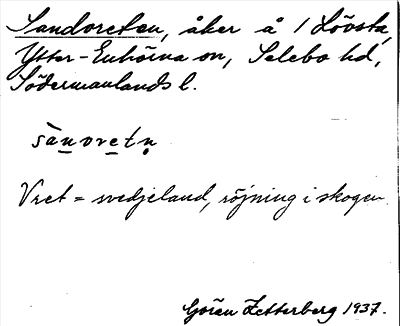 Sandvreten, åker å 1 Lövsta,
Ytter-Enhörna sn, Selebo hd,
Södermanlands l.
sànvretn̥
Vret = svedjeland, röjning i skogen.
Göran Zetterberg 1937.